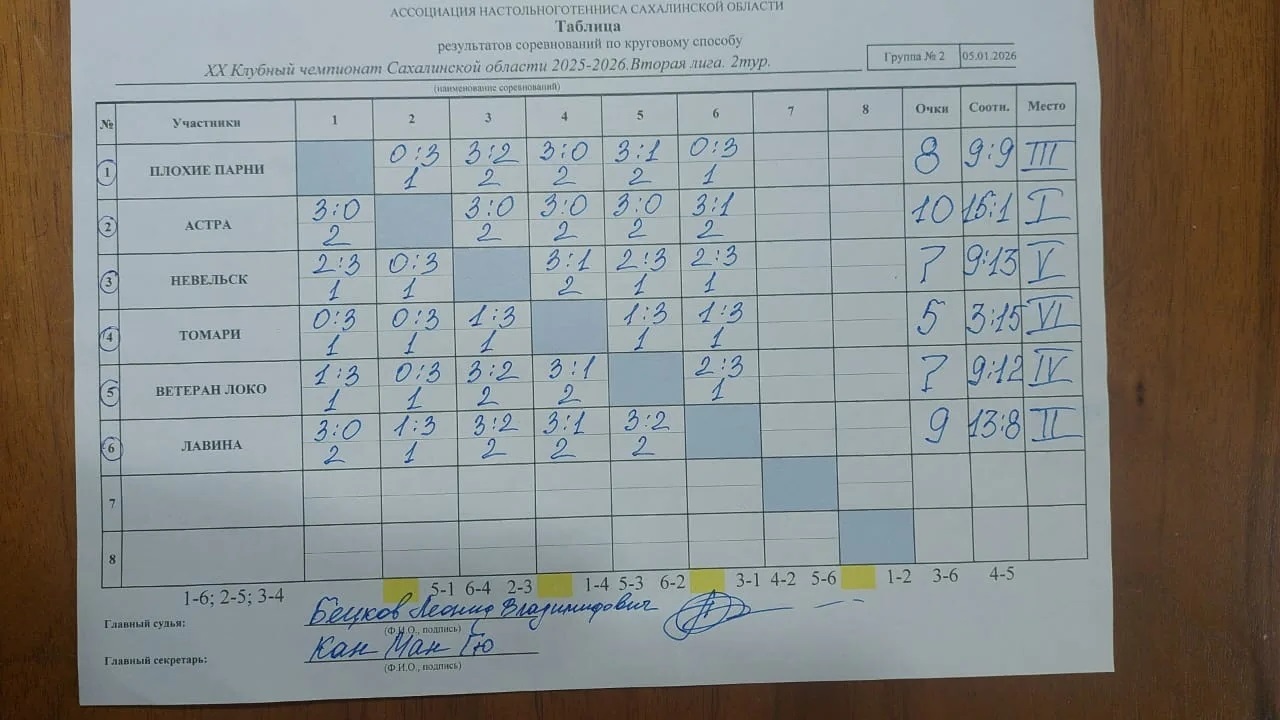 АССОЦИАЦИЯ НАСТОЛЬНОГОТЕННИСА САХАЛИНСКОЙ ОБЛАСТИ
Таблица
результатов соревнований по круговому способу
XX Клубный чемпионат Сахалинской области 2025-2026.Вторая лига. 2тур.
Группа № 2 05.01.2026
(наименование соревнований)
№ Участники 1 2 3 4 5 6 7 8 Очки Соотн. Место
1 ПЛОХИЕ ПАРНИ 0:3 3:2 3:0 3:1 0:3 8 9:9 III
1 2 2 2 1
2 АСТРА 3:0 3:0 3:0 3:0 3:1 10 15:1 I
2 2 2 2 2
3 НЕВЕЛЬСК 2:3 0:3 3:1 2:3 2:3 7 9:13 V
1 1 2 1 1
4 ТОМАРИ 0:3 0:3 1:3 1:3 1:3 5 3:15 VI
1 1 1 1 1
5 ВЕТЕРАН ЛОКО 1:3 0:3 3:2 3:1 2:3 7 9:12 IV
1 1 2 2 1
6 ЛАВИНА 3:0 1:3 3:2 3:1 3:2 9 13:8 II
2 1 2 2 2
7
8
1-6; 2-5; 3-4 5-1 6-4 2-3 1-4 5-3 6-2 3-1 4-2 5-6 1-2 3-6 4-5
Главный судья: Леонид Владимирович
(Ф.И.О., подпись)
Главный секретарь: Кан Ман Гю
(Ф.И.О., подпись)